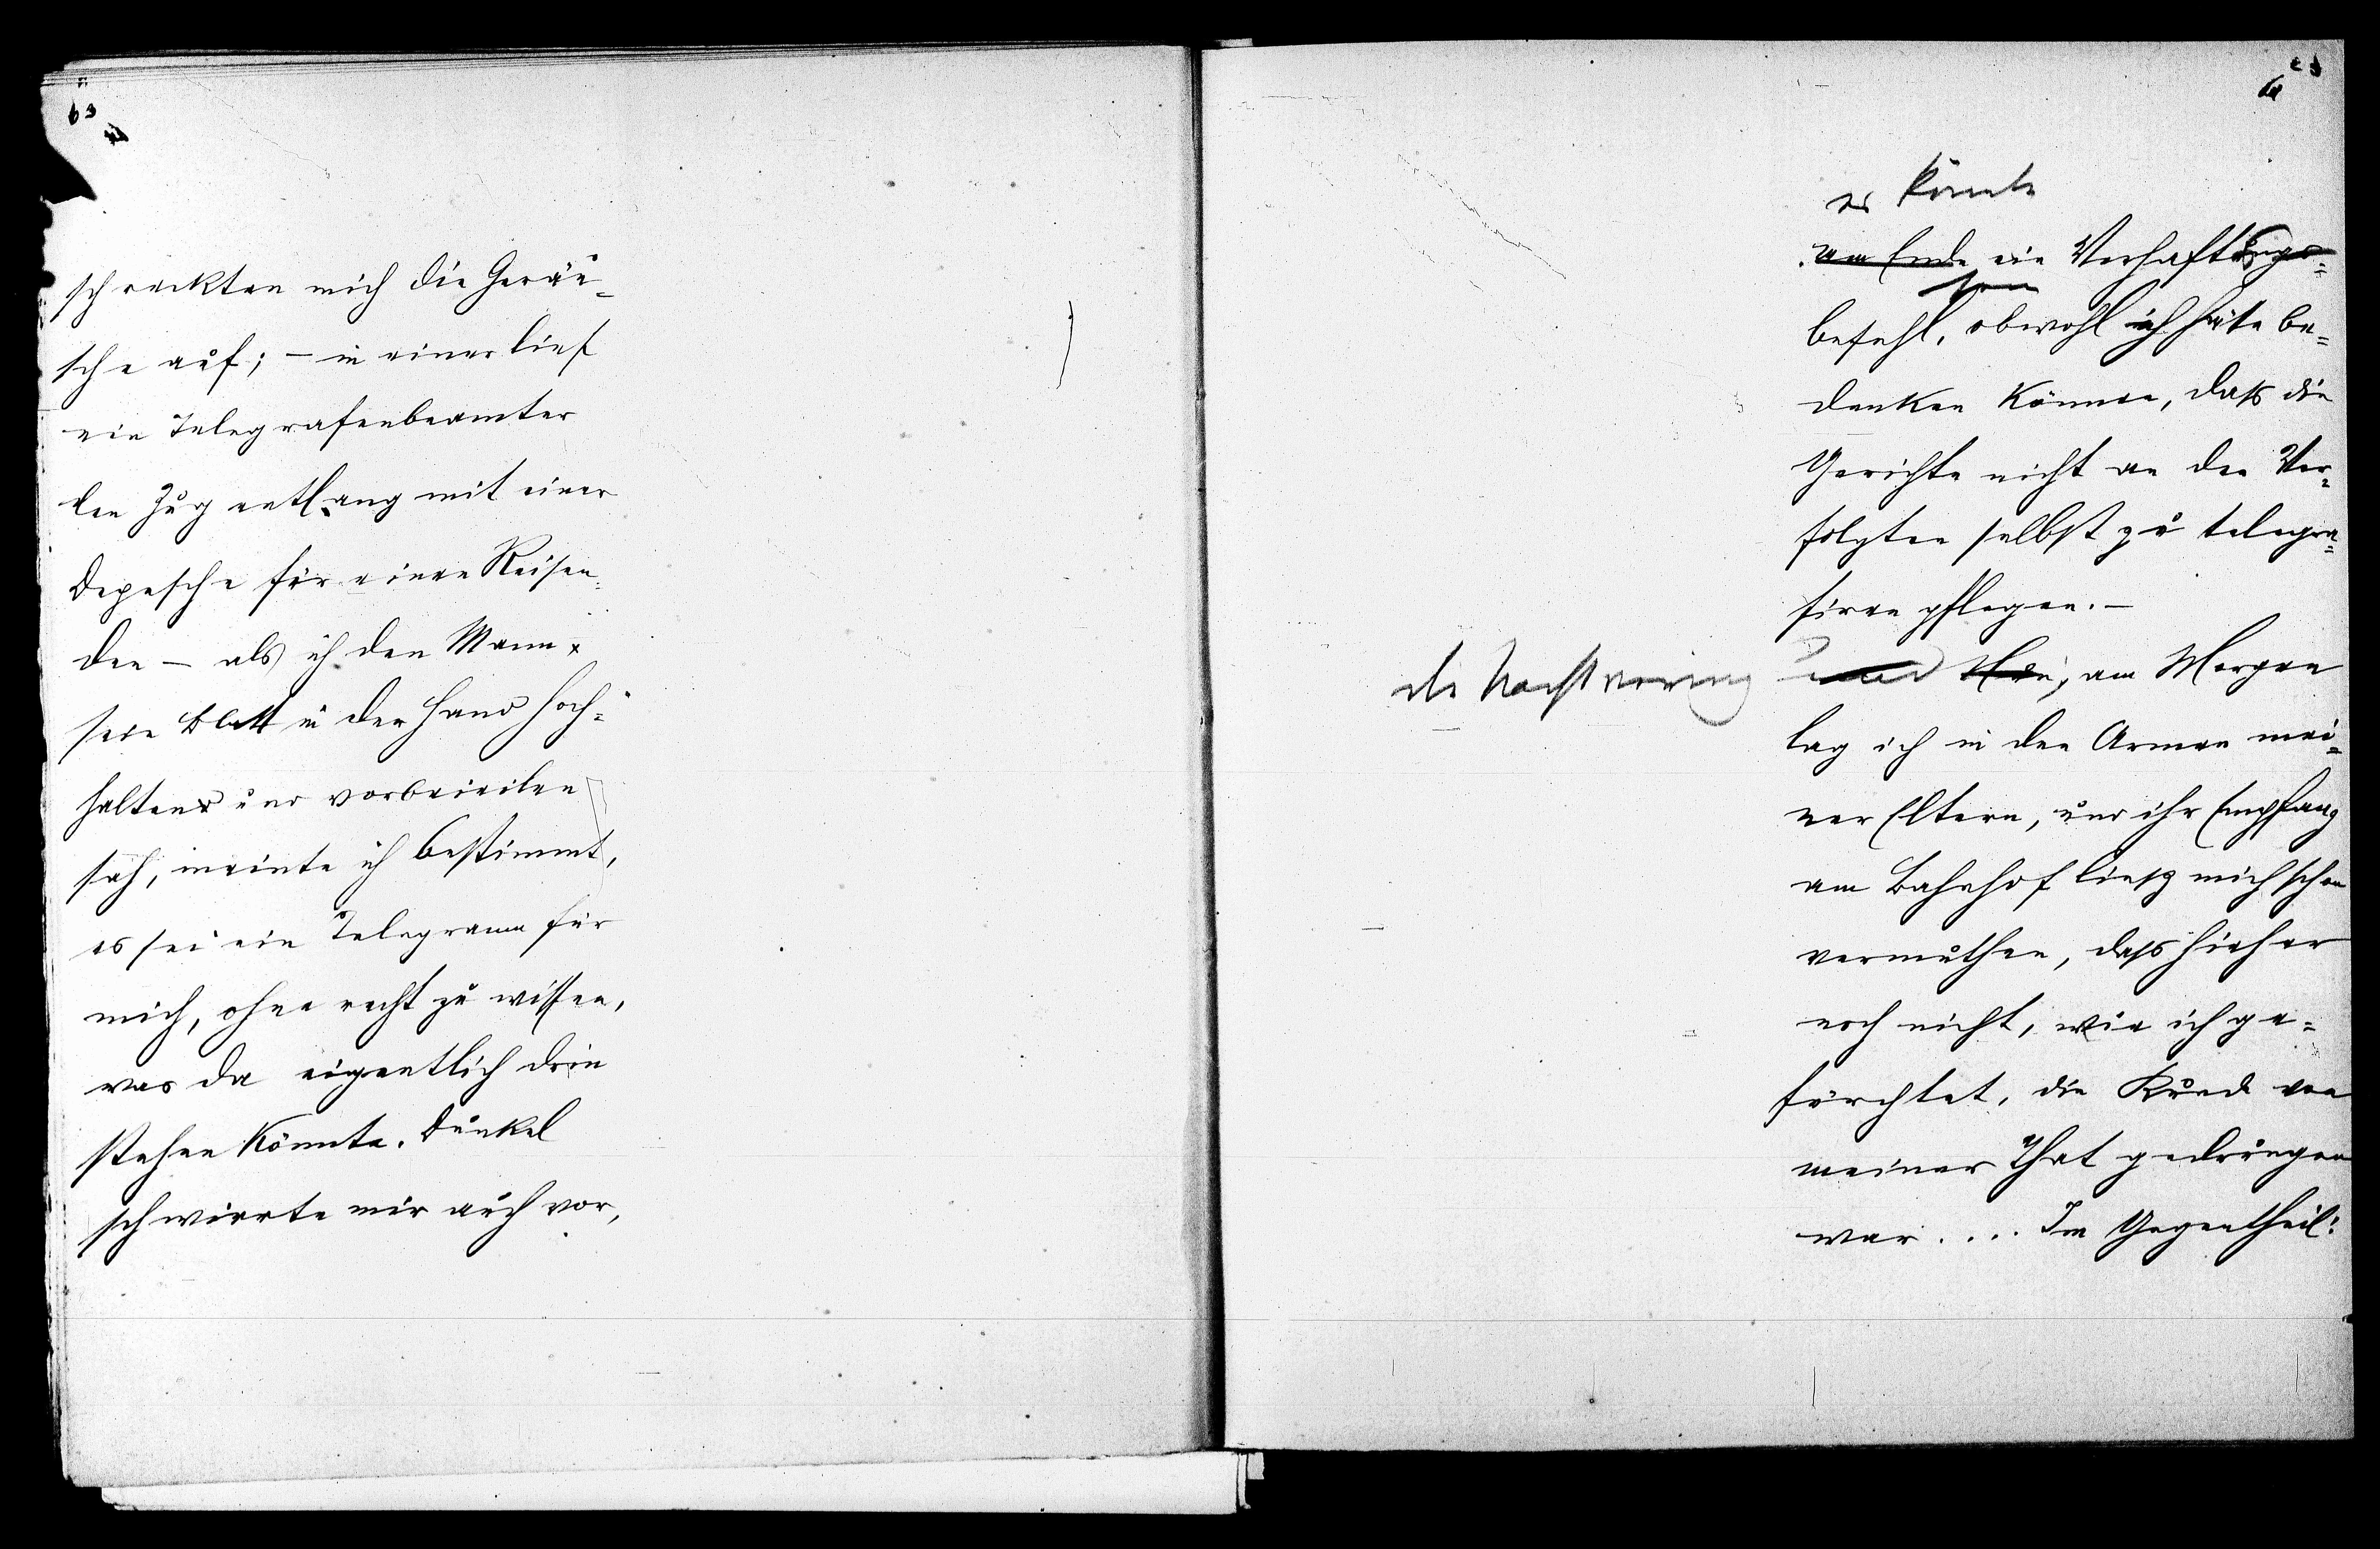 63
schreckten mich die Geräu-
sche auf; – in einer lief
ein Telegrafenbeamter
den Zug entlang mit einer
Depesche für einen Reisen-
den – als ich den Mann
sein Blatt in der Hand hoch-
halten und vorbeieilen
sah, meinte ich bestimmt,
es sei ein Telegramm für
mich, ohne recht zu wissen,
was da eigentlich drin
stehen könnte. Dunkel
schwirrte mir auch vor,
es könnte
am Ende ein Verhaftungs-
sein
befehl, obwohl ich hätte be-
denken können, dass die
Gerichte nicht an den Ver-
folgten selbst zu telegra-
firen pflegen. –
die Nacht verging
und am Morgen
lag ich in den Armen mei-
ner Eltern, und ihr Empfang
am Bahnhof liess mich schon
vermuthen, dass hieher
noch nicht, wie ich ge-
fürchtet, die Kunde von
meiner That gedrungen
war.... Im Gegentheil: